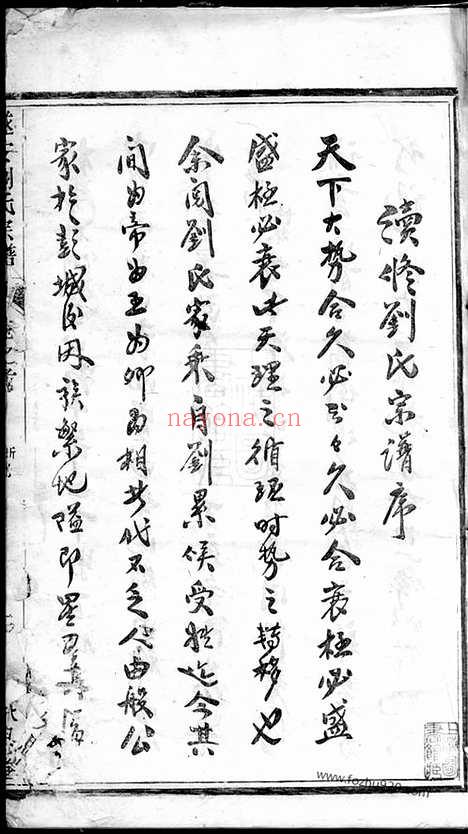 續修劉氏宗譜序
天下大勢合久必分分久必合衰極必盛
盛極必衰此天理之循環時勢之轉移也
余閱劉氏家乘自劉累侯受姓迄今其
間為帝為王為卿為相者代不乏人由般公
家於彭城后因族繁地隘即星
劉氏宗譜
nayona.cn
www.fozhu920.com